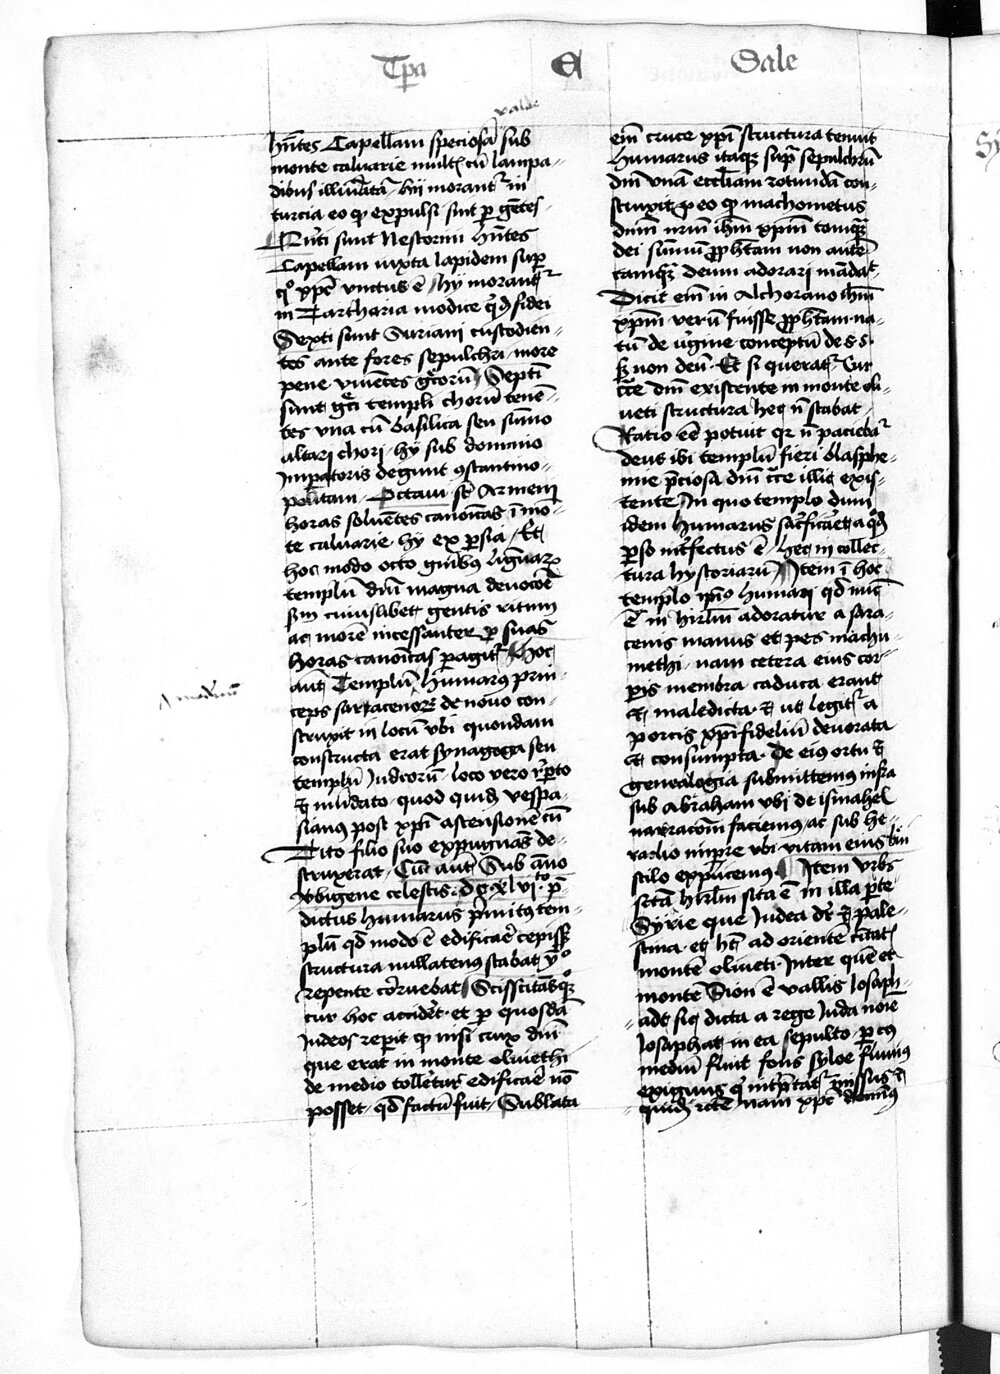 Tp̄a
C
Sale
valde
hn̄tes Capellam speciosā sub
monte caluarie mult(is) cū lampa-
dibus illuīatā hij morantʳ in
turcia eo qꝫ expulsi sūt ꝑ gētes
Qui(n)ti sunt Nestorini hn̄tes
Capellam iuxta lapidem sup(er)
qº xp̄c vnctus ē hy morantʳ
in Tartharia modice qͥdē fidei
Sexti sunt Suriani custodien-
tes ante fores sepulchri more
pene viuētes gͥcorū Septī
sunt gͥci templi chorū tenē-
tes vna cū basilica seu sūmo
altari chori hy sub dominio
Impatoris degunt ꝯstantino-
politani Octaui sūt Armeni
horas soluētes canoīcas ī mō-
te caluarie hy ex ꝑsia Et
hoc modo octo gn̄ibus liguarꝫ
templū dn̄i magna deuocoē
scd̄m cuiuslibet gentis ritum
ac morē incessanter ꝑ suas
horas canoīcas ꝑagitʳ Hoc
aut̄ Templū Humarꝰ prin-
ceps sarracenorꝫ de nouo con-
struxit in locū vbi quondam
constructa erat synagoga seu
templū Iudeorū loco vero r̄ꝑto
& mūdato quod quidē vespa-
sianꝰ post xp̄i ascensionē cū
Tito filio suo expugnās de-
struxerat Cū aut̄ Sub āno
vbigene celestis dcxlvi to p̄-
dictus Humarus p̄mitꝰ tem-
plū qd̄ modo ē edificaē cepiss(et)
structura nullatenꝰ stabat ꝫº
repente cōruebat Scisscitāsqꝫ
cur hoc accid'et et ꝑ quosdā
Iudeos reꝑit qꝫ nisi crux dn̄i
que erat in monte oliuethi
de medio tolletur edificaē nō
posset qd̄ factū fuit Sublata
em̄ cruce xp̄i structura tenuit
Humarus itaqꝫ sup̄ sepulchrū
dn̄i vnā eccl̄iam rotundā con-
struxit ꝓ eo qꝫ machometus
dnm̄ nr̄m ihm̄ xpm̄ tamqꝫ
dei sūmū ꝓph̄tam non autē
tamqꝫ deum adorari mādat
Dicit em̄ in Alchorano ihm̄
xpm̄ verū fuisse ꝓph̄tam na-
tū de v'gine conceptū de s s
sꝫ non deū Et si queratʳ Cur
cͥce dn̄i existente in monte oli-
ueti structura hec n̄ stabat
Ratio eē potuit qr n̄ paciebaʳ
deus ibi templū fieri blasphe-
mie p̄ciosa dn̄i cͥce illic exis-
tente In quo templo dum
idem Humarus sacͥficaret a qͦdā
ꝑso int̄fectus ē hec in collec-
tura hystoriarū Item ī hoc
templo ip̄iꝰ Humari qd̄ nūc
ē in hirlm̄ adoratur a sara-
cenis manus et pes machu-
methi nam cetera eius cor-
ꝑis membra caduca erant
et maledicta & ut legitʳ a
porcis xp̄ifideliū deuorata
et consumpta De eiꝰ ortu &
genealogia submittemꝰ infra
sub Abraham vbi de ismahel
narracoēm faciemꝰ ac sub he-
raclio imp̄re vbi vitam eius bͥui
stilo expūcemꝰ Item vrbs
sctā hirlm̄ sita ē in illa ꝑte
Syrie que Iudea dr̄ & pale-
stina et hꝫ ad orientē cītatꝭ
montē oliueti Inter quē et
montē Sion ē vallis Iosaph-
adt sic dicta a rege Iuda noīe
Iosaphat in ea sepulto ꝑ cꝰ
mediū fluit fons syloe fluuiꝰ
exiguus qͥ int̄ꝑtatʳ missus &
quidē recte Nam xp̄c